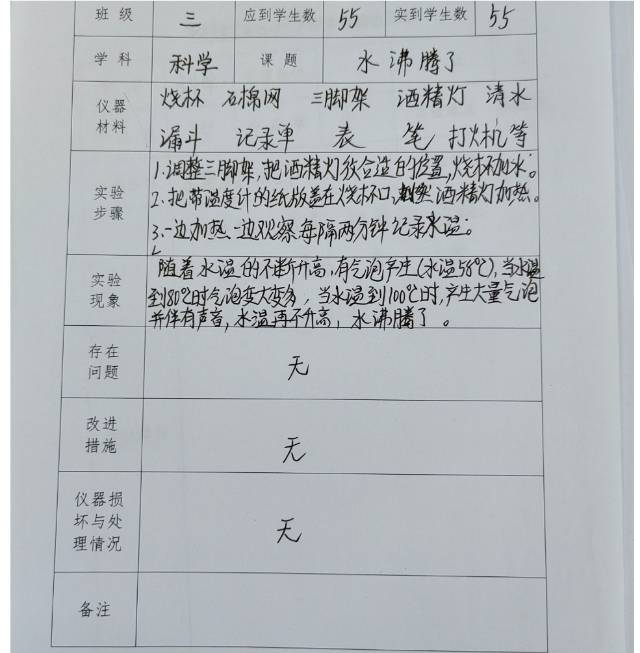 班 级 三 应到学生数 55 实到学生数 55
学 科 科学 课 题 水沸腾了
仪器 烧杯 石棉网 三脚架 酒精灯 清水
材料 漏斗 记录单 表 笔 打火机等
1.调整三脚架,把酒精灯放合适的位置,烧杯加水。
实验 2.把带温度计的纸板盖在烧杯口, 酒精灯加热。
步骤 3.一边加热一边观察每隔两分钟记录水温。
随着水温的不断升高,有气泡产生(水温58℃),当水温
实验 到80℃时气泡变大变多,当水温到100℃时,产生大量气泡
现象 并伴有声音,水温再不升高,水沸腾了。
存在
问题 无
改进
措施 无
仪器损
坏与处 无
理情况
备注